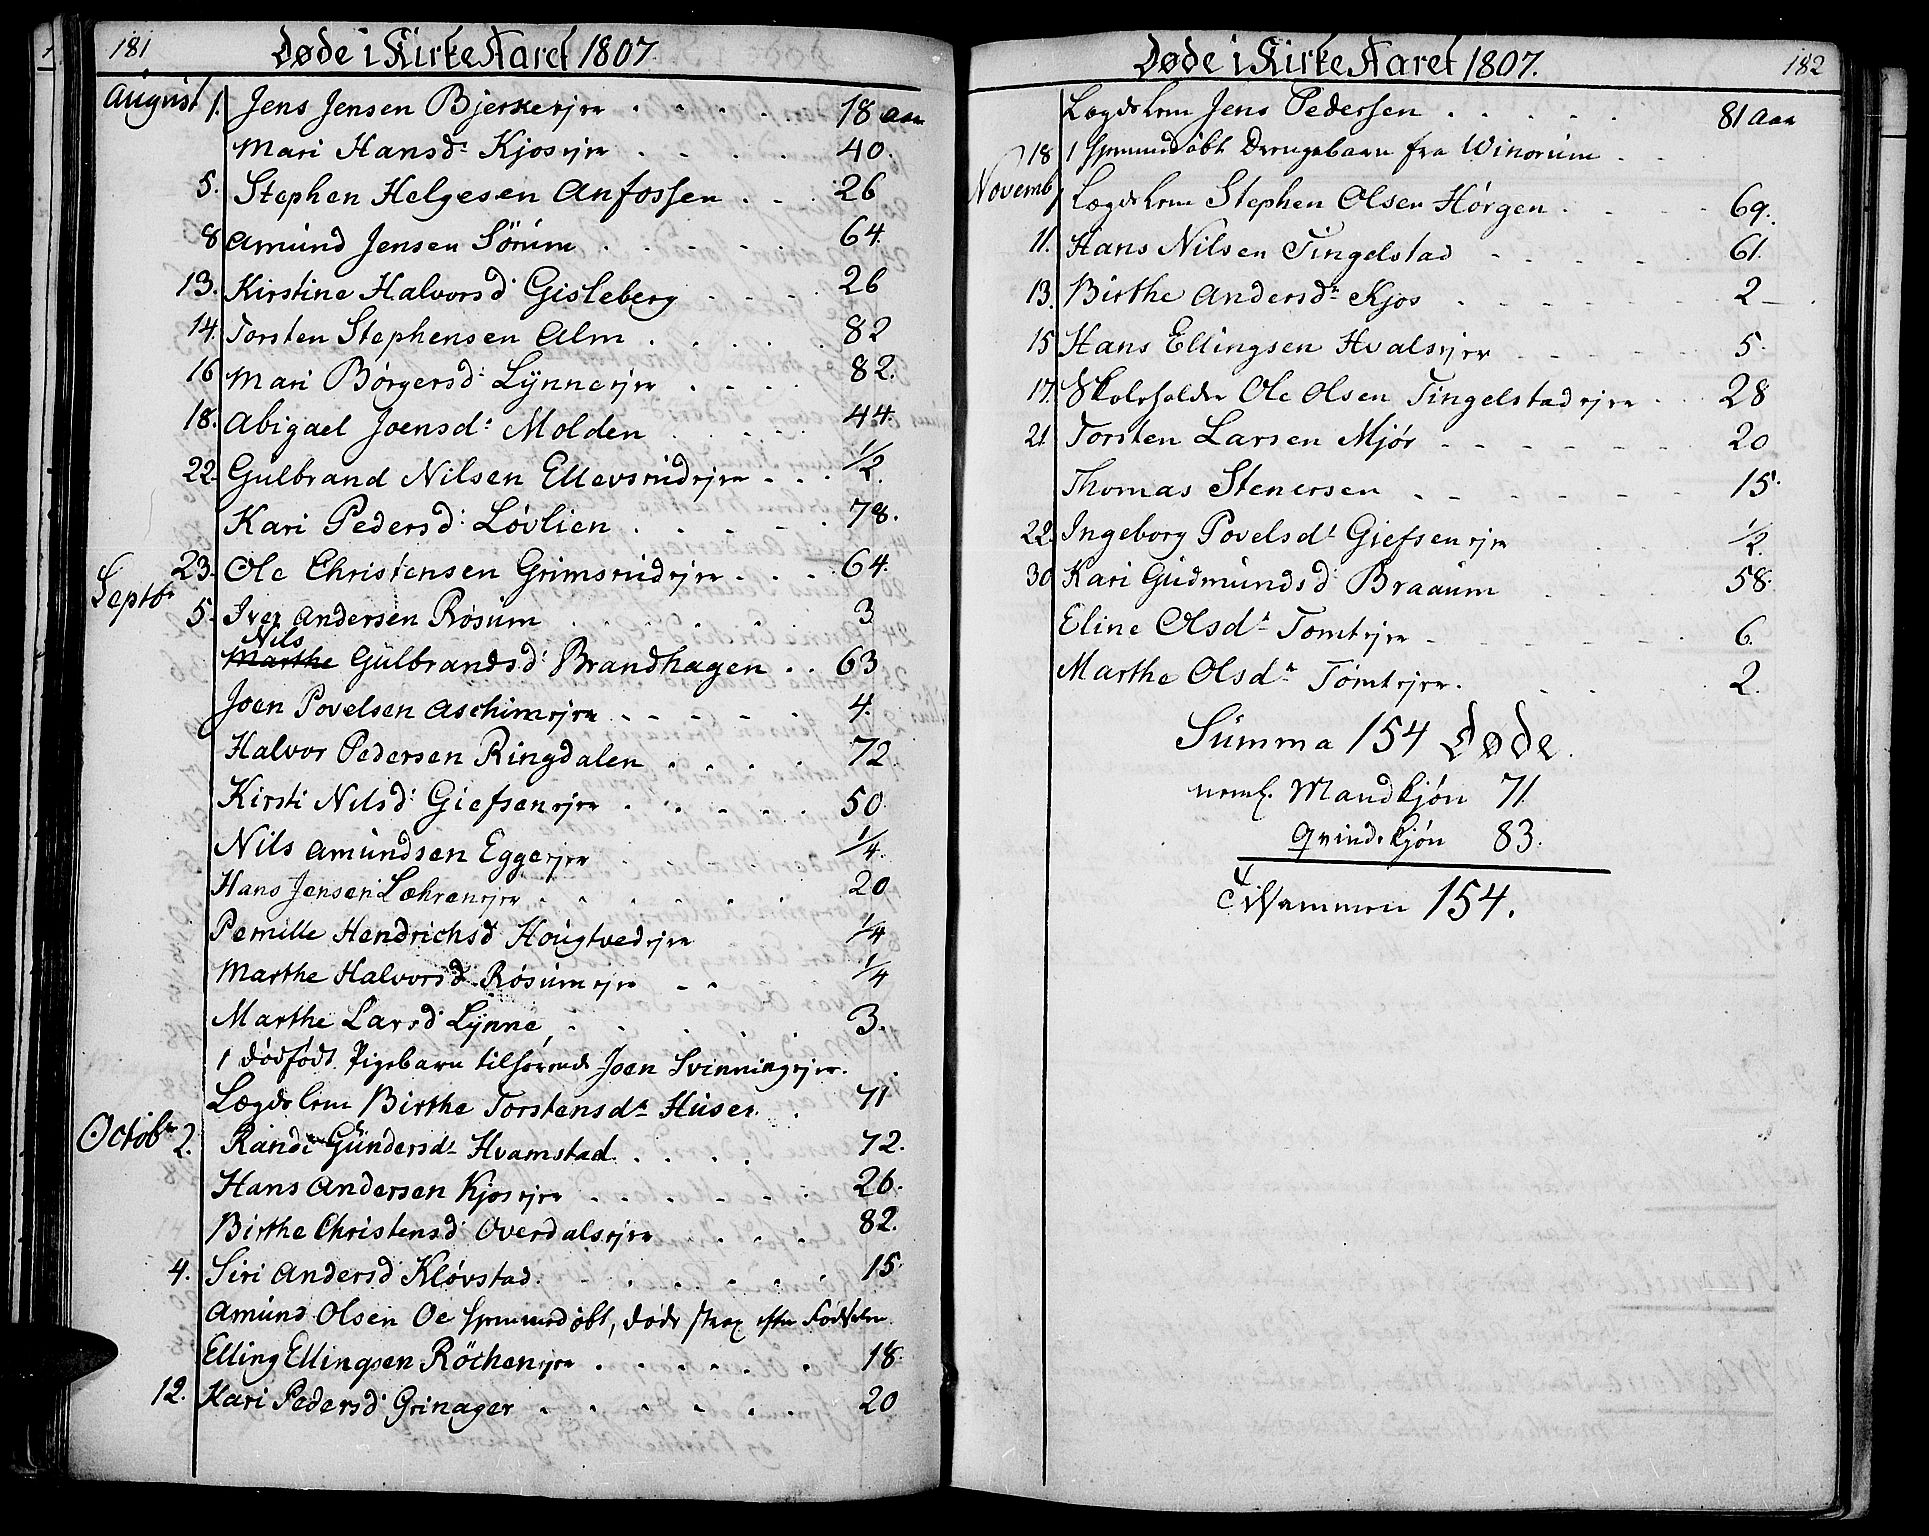 181
Døde i Kirke Aaret 1807.
August 1. Jens Jensen Bjerkeejer . . . . 18 Aar
Mari Hansd. Kjosejer . . . . 40.
5. Stephen Helgesen Anfossen . . . 26
8 Amund Jensen Sörum . . . . . 64.
13. Kirstine Halvorsd. Gisleberg . . . . 26
14. Torsten Stephensen Alm . . . . . 82
16 Mari Börgersd. Lynneejer . . . . 82.
18. Abigael Joensd. Molden . . . . . 44.
22. Gulbrand Nilsen Ellevsrudejer . . . 1/2.
Kari Pedersd. Løvlien . . . . . 78.
23. Ole Christensen Grimsrudejer . . . . 64.
Septbr
5. Iver Andersen Røsum . . . . . 3
Nils
Marthe Gulbrandsd. Brandhagen . . 63
Joen Povelsen Aschimejer . . . . . 4.
Halvor Pedersen Ringdalen . . . . 72
Kirsti Nilsd. Giefsenejer . . . . . 50.
Nils Amundsen Eggeejer . . . . 1/4.
Hans Jensen Læhrenejer . . . . . 20
Pernille Hendrichsd Hougtvedejer 1/4
Marthe Halvorsd. Røsumejer . . 1/4
Marthe Larsd. Lynne . . . . . 3.
1 dødfødt Pigebarn tilhørende Joen Svinningejer.
Lægdslem Birthe Torstensdr Huser . 71
Octobr 2. Randi Gundersdr Hvamstad . . . . 72.
Hans Andersen Kjosejer . . . . . . 26.
Birthe Christensd. Overdalsejer . . . . 82.
4. Siri Andersd Kløvstad . . . . . . 15.
Amund Olsen Oe hjemmedøbt, døde strax efter Fødselen
Elling Ellingsen Röckenejer . . . . . . 18.
12. Kari Pedersd. Grinager . . . . . . 20
Døde i Kirke Aaret 1807. 182
Lægdslem Jens Pedersen . . . . . 81 Aar
18 1 hjemmedøbt Drengebarn fra Winorum . .
Novemb 1 Lægdslem Stephen Olsen Hörgen . . . . 69.
11. Hans Nilsen Tingelstad . . . . . 61.
13. Birthe Andersdr Kjos . . . . . . . 2
15 Hans Ellingsen Hvalsejer . . . . . 5.
17. Skoleholder Ole Olsen Tingelstadejer . . 28
21 Torsten Larsen Mjör . . . . . . . 20
Thomas Stenersen . . . . . . . 15.
22. Ingeborg Povelsdr Giefsenejer . . . 1/2.
30 Kari Gudmundsd Braaum . . . . 58.
Eline Olsdr Tomtejer . . . . . . 6.
Marthe Olsdr Tomtejer . . . . . 2.
Summa 154 Døde.
neml. Mandkjøn 71.
Qvindekjøn 83.
Tilsammen 154.